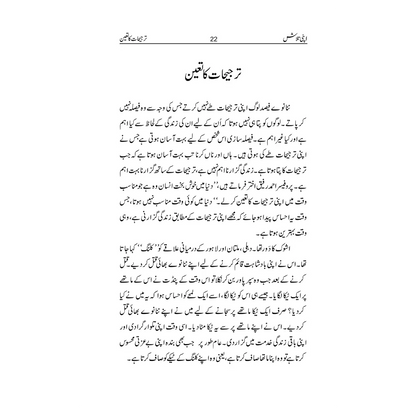 اپنی تلاش 22 ترجیحات کا تعین
ترجیحات کا تعین
ننانوے فیصد لوگ اپنی ترجیحات طے نہیں کرتے جس کی وجہ سے وہ فیصلہ نہیں
کر پاتے۔ لوگوں کو پتا ہی نہیں ہوتا کہ اُن کے لیے ان کی زندگی کے لحاظ سے کیا اہم
ہے اور کیا غیر اہم ہے۔ فیصلہ سازی اس شخص کے لیے بہت آسان ہوتی ہے جس نے
اپنی ترجیحات طے کی ہوتی ہیں۔ ہاں اور ناں کرنا تب بہت آسان ہوتا ہے کہ جب
ترجیحات کا پتا ہوتا ہے۔ زندگی گزارنا اہم نہیں ہے، ترجیحات کے ساتھ گزارنا بہت اہم
ہے۔ پروفیسر احمد رفیق اختر فرماتے ہیں، ’’دنیا میں خوش بخت انسان وہ ہے جو مناسب
وقت میں اپنی ترجیحات کا تعین کر لے۔‘‘ دنیا میں کوئی وقت مناسب نہیں ہوتا، جس
وقت یہ احساس پیدا ہو جائے کہ مجھے اپنی ترجیحات کے مطابق زندگی گزارنی ہے، وہی
وقت بہترین ہوتا ہے۔
اشوک کا دَور تھا۔ دہلی، ملتان اور لاہور کے درمیانی علاقے کو ’’کلنگ‘‘ کہا جاتا
تھا۔ اس نے اپنی بادشاہت قائم کرنے کے لیے اپنے ننانوے بھائی قتل کر دیے۔ قتل
کرنے کے بعد جب وہ سپر پاور بن کر نکلا تو اس وقت کے پنڈت نے اس کے ماتھے
پر ایک ٹیکا لگایا۔ جیسے ہی اس کو ٹیکا لگا، اسے ایک لمحے کو احساس ہوا کہ یہ میں نے کیا
کر دیا؟ صرف ایک ٹیکا ماتھے پر سجانے کے لیے میں نے اپنے ننانوے بھائی قتل
کر دیے۔ اس نے اپنے ماتھے پر سے یہ ٹیکا مٹا دیا۔ اسی وقت اپنی تلوار گرا دی اور
اپنی باقی زندگی خدمت میں گزار دی۔ عام طور پر جب بھی بندہ اپنی بے عزتی محسوس
کرتا ہے تو وہ اپنا ماتھا صاف کرتا ہے، یعنی وہ اپنے کلنگ کے ٹیکے کو صاف کرتا ہے،